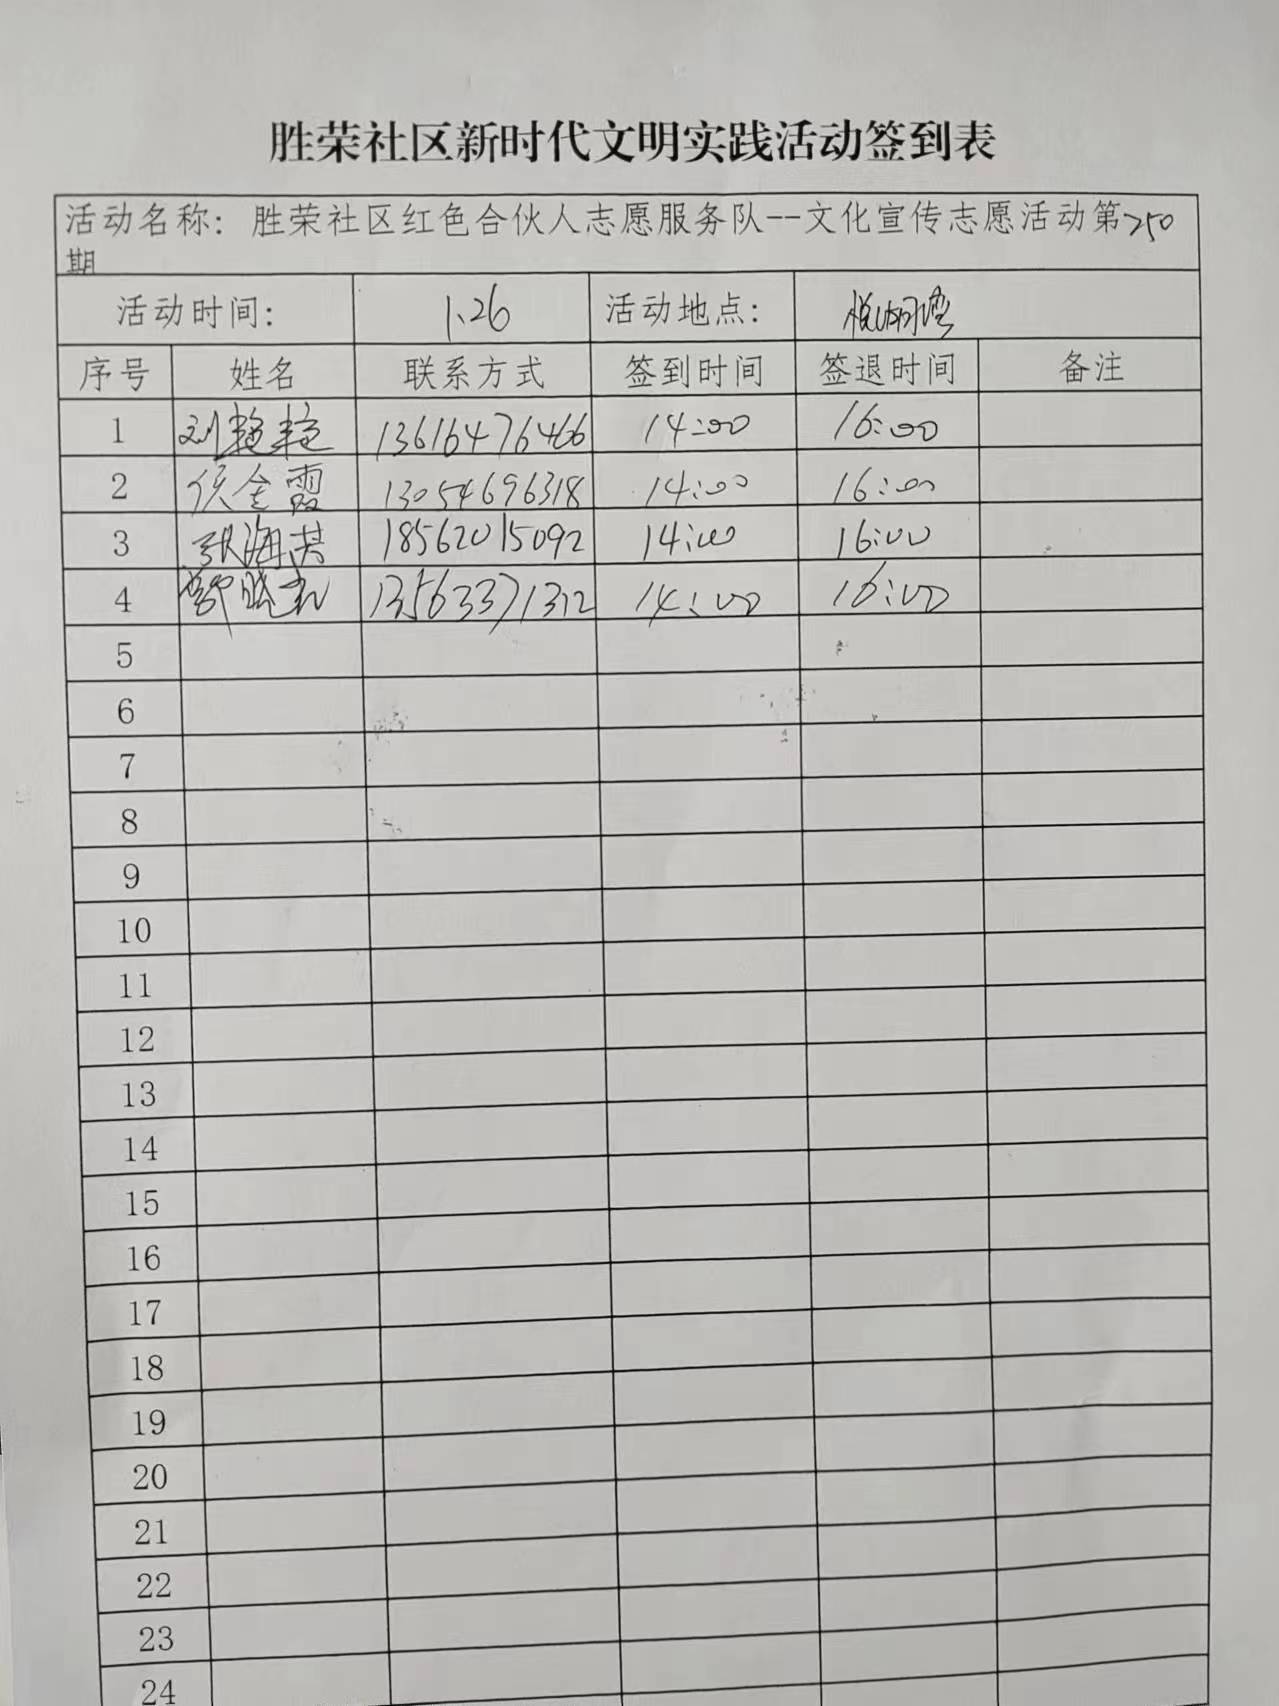 胜荣社区新时代文明实践活动签到表
活动名称：胜荣社区红色合伙人志愿服务队--文化宣传志愿活动第250
期
活动时间： 1.26 活动地点： 悦湖湾
序号 姓名 联系方式 签到时间 签退时间 备注
1 刘艳艳 13616476466 14:00 16:00
2 侯金霞 13054696318 14:00 16:00
3 张海英 18562015092 14:00 16:00
4 晓 13563371312 14:00 16:00
5
6
7
8
9
10
11
12
13
14
15
16
17
18
19
20
21
22
23
24